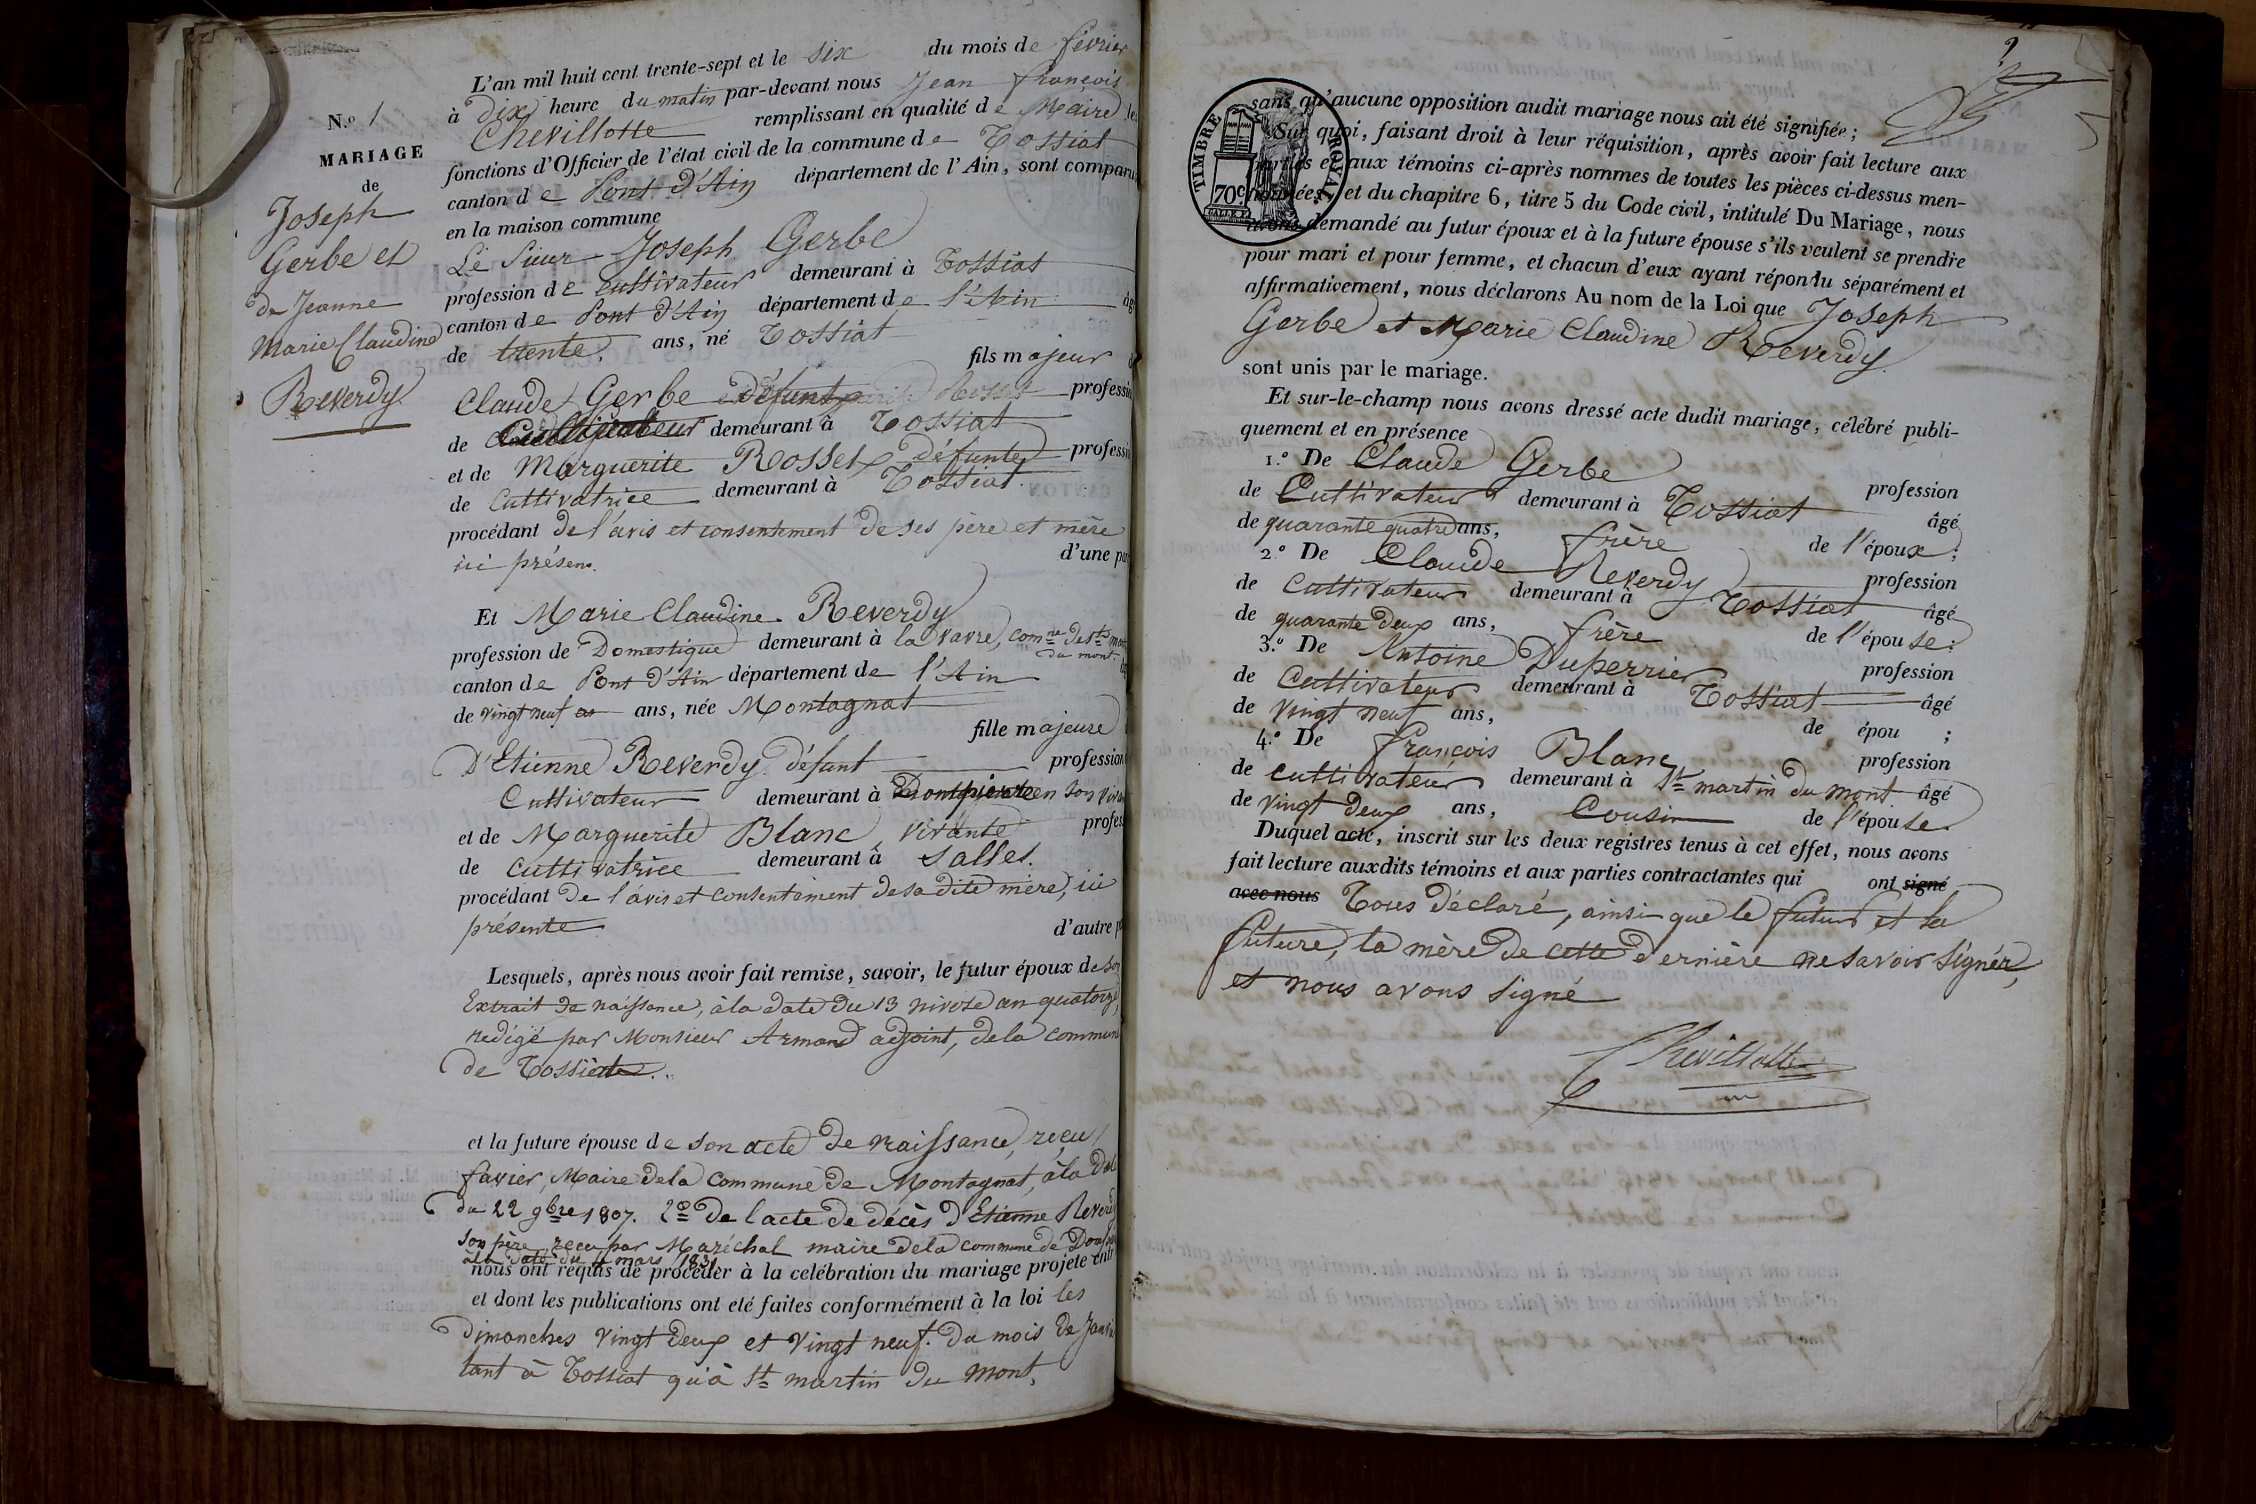 N.º 1
MARIAGE
de
Joseph
Gerbe et
de Jeanne
Marie Claudine
Reverdy
L'an mil huit cent trente-sept et le six du mois de février
à dix heure du matin par-devant nous Jean françois
Chevillotte remplissant en qualité de Maire les
fonctions d'Officier de l'état civil de la commune de Tossiat
canton de Pont d'Ain département de l'Ain, sont comparu
en la maison commune
Le Sieur Joseph Gerbe
profession de cultivateur demeurant à Tossiat
canton de Pont d'Ain département de l'Ain âg
de trente ans, né Tossiat
fils majeur d
Claude Gerbe défunt professi
de Cultivateur demeurant à Tossiat
et de Marguerite Rosset défunte professi
de Cultivatrice demeurant à Tossiat
procédant de l'avis et consentement de ses père et mère
ici présens. d'une pa
Et Marie Claudine Reverdy
profession de Domestique demeurant à la vavre, comne de st martin
du mont
canton de Pont d'Ain département de l'Ain
de vingt neuf ans, née Montagnat
fille majeure
D'Etienne Reverdy défunt profession
Cultivateur demeurant à Dompierre en son viva
et de Marguerite Blanc, vivante profes
de cultivatrice demeurant à Salles.
procédant de l'avis et consentement de sa dite mère, ici
présente d'autre p
Lesquels, après nous avoir fait remise, savoir, le futur époux de son
Extrait de naissance, à la date du 13 nivose an quatorze,
redigé par Monsieur Armand adjoint, de la commun
de Tossiat.
et la future épouse de son acte de naissance, reçu
favier, Maire de la commune de Montagnat, à la date
du 22 9bre 1807. 2º De l'acte de décès d'Etienne Reverd
son père reçu par Maréchal maire de la commune de Dom
à la date du 4 mars 1831
nous ont requis de procéder à la celébration du mariage projeté entr
et dont les publications ont eté faites conformément à la loi les
Dimanches vingt deux et vingt neuf. du mois de Janvi
tant à Tossiat qu'à St martin du mont,
2
TIMBRE ROYAL
70c
sans qu'aucune opposition audit mariage nous ait été signifiée;
Sur quoi, faisant droit à leur réquisition, après avoir fait lecture aux
parties et aux témoins ci-après nommes de toutes les pièces ci-dessus men-
tionnées, et du chapitre 6, titre 5 du Code civil, intitulé Du Mariage, nous
avons demandé au futur époux et à la future épouse s'ils veulent se prendre
pour mari et pour femme, et chacun d'eux ayant répondu séparément et
affirmativement, nous déclarons Au nom de la Loi que Joseph
Gerbe et Marie Claudine Reverdy
sont unis par le mariage.
Et sur-le-champ nous avons dressé acte dudit mariage, célébré publi-
quement et en présence
1.º De Claude Gerbe profession
de Cultivateur demeurant à Tossiat âgé
de quarante quatre ans, frère de l'époux;
2.º De Claude Reverdy profession
de Cultivateur demeurant à Tossiat âgé
de quarante deux ans, frère de l'épouse;
3.º De Antoine Duperrier profession
de Cultivateur demeurant à Tossiat âgé
de vingt neuf ans, de épou ;
4.º De françois Blanc profession
de cultivateur demeurant à St martin du mont âgé
de vingt deux ans, Cousin de l'épouse.
Duquel acte, inscrit sur les deux registres tenus à cet effet, nous avons
fait lecture auxdits témoins et aux parties contractantes qui ont signé
avec nous Tous déclaré, ainsi que le futur et la
future, la mère de cette dernière ne savoir signer,
et nous avons signé
Chevillotte